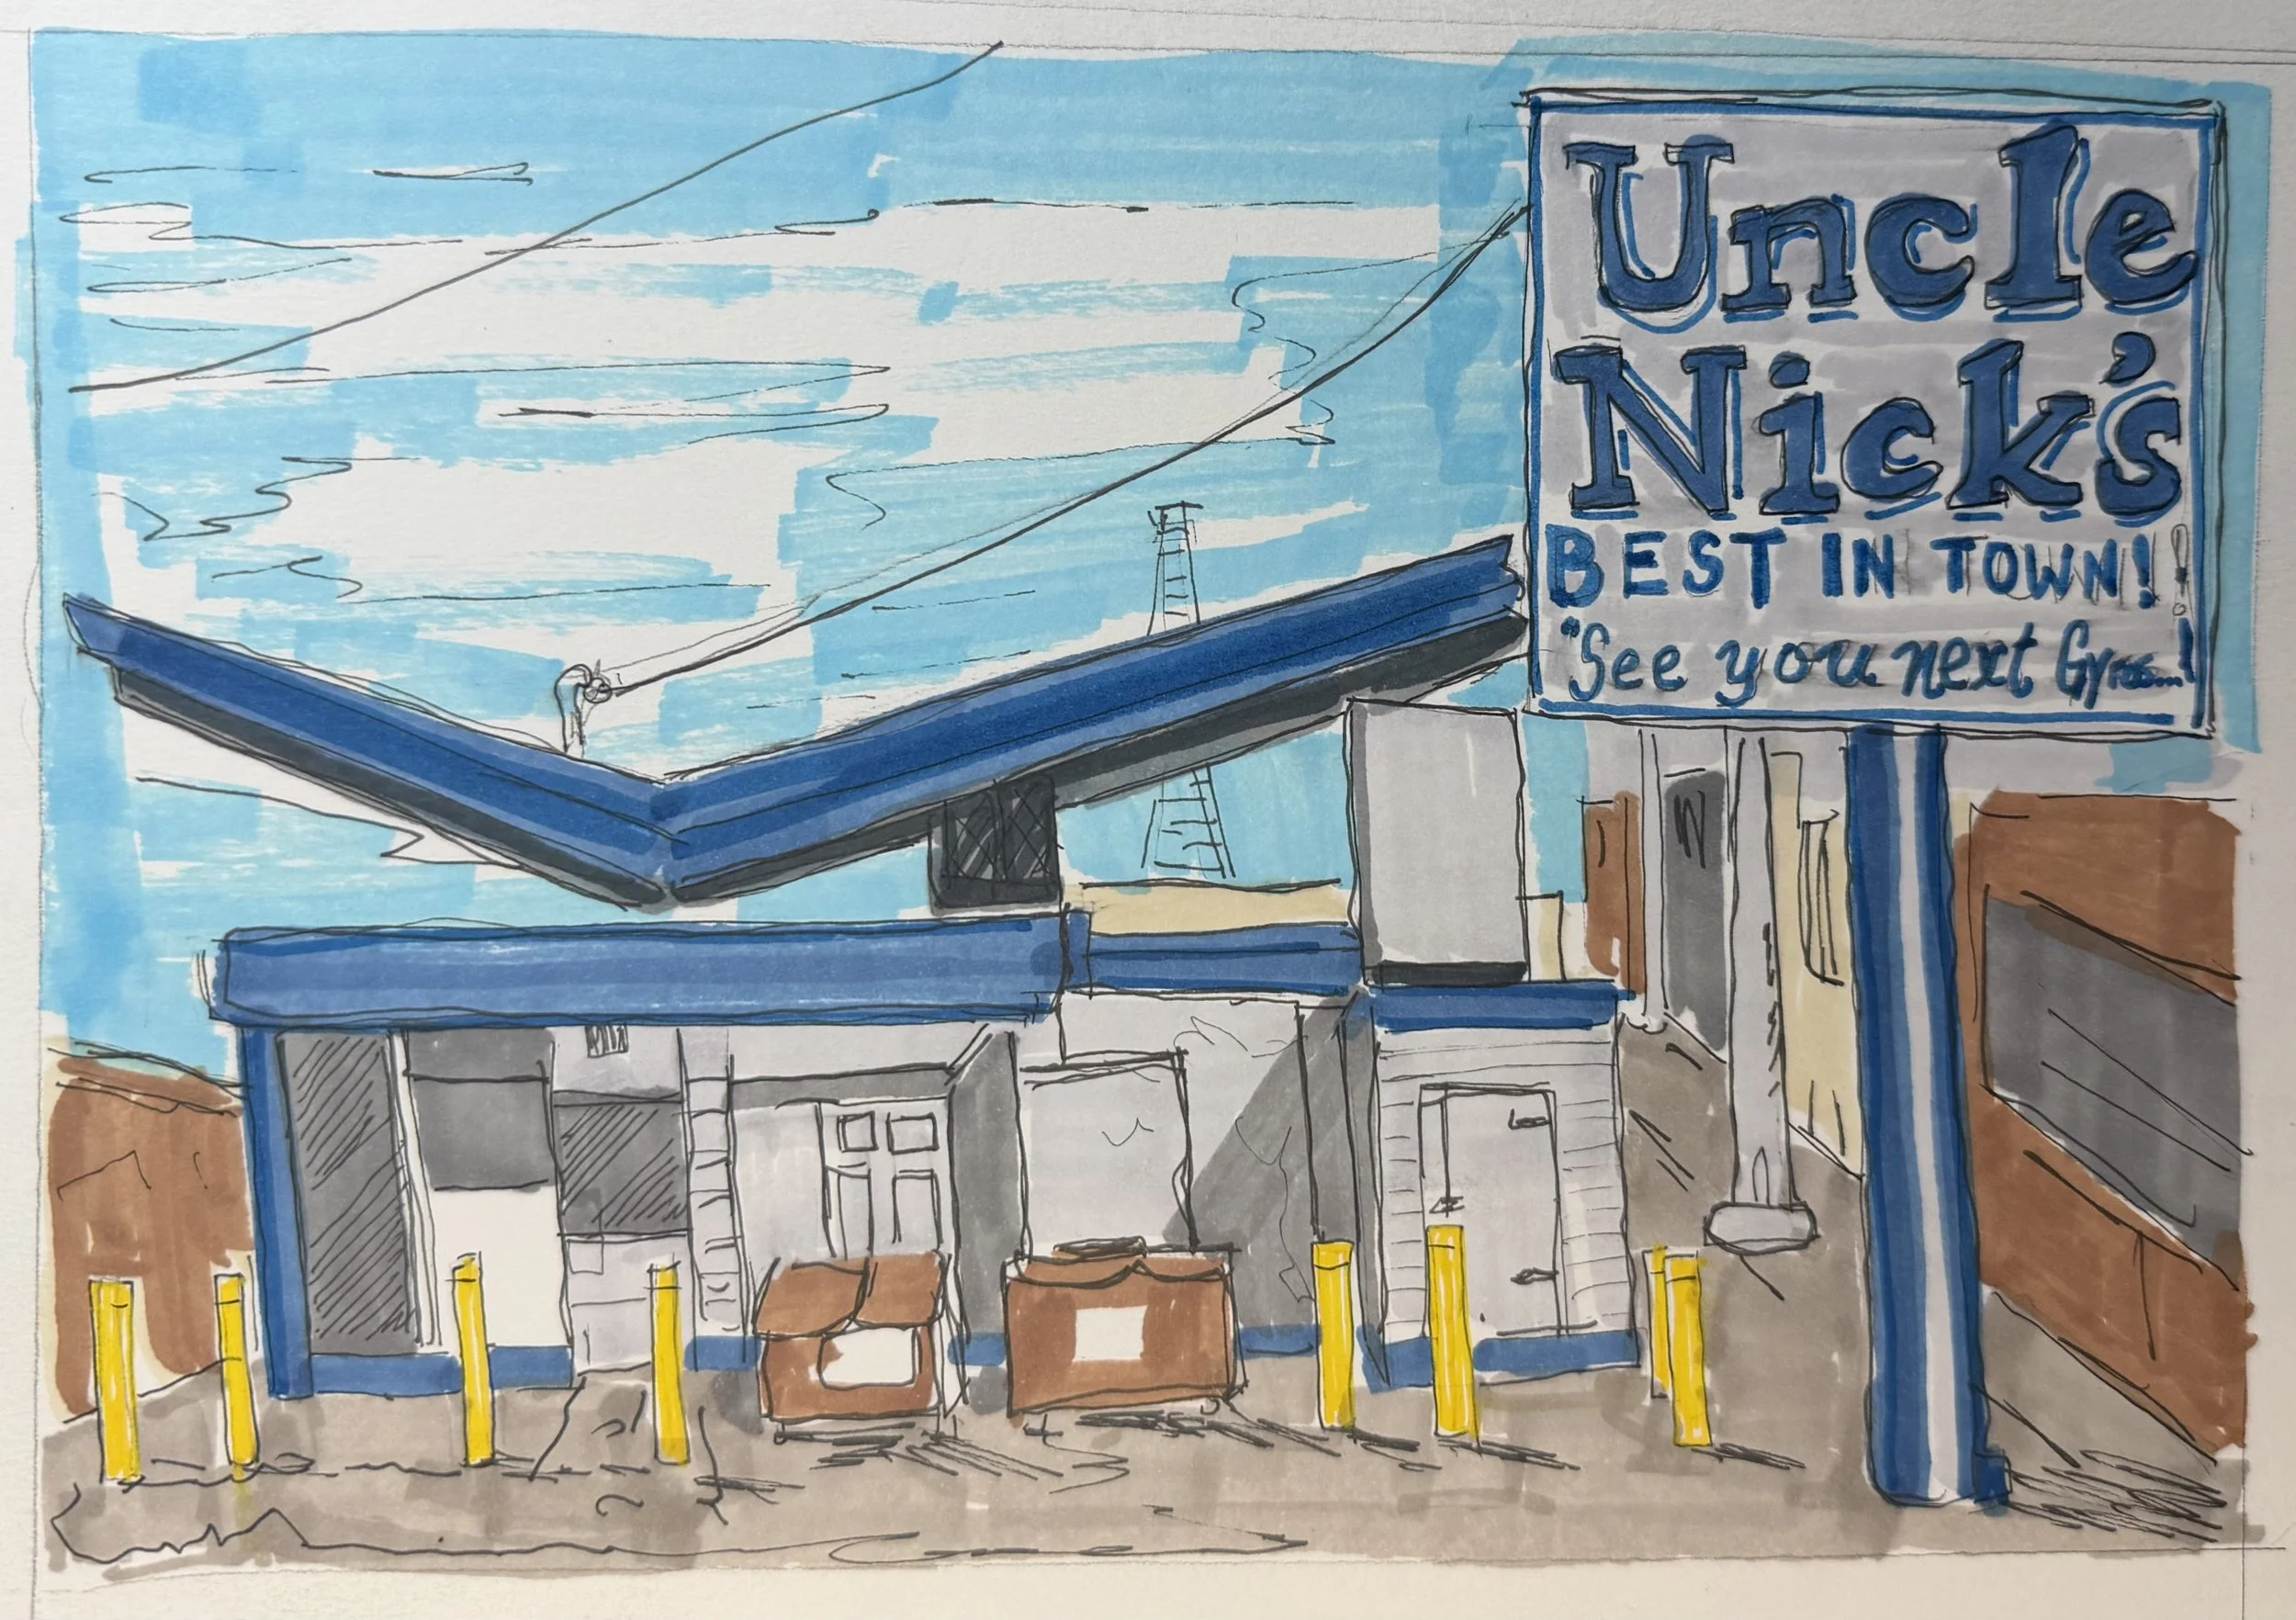 Uncle
Nick's
BEST IN TOWN!
"See you next Gyros...!